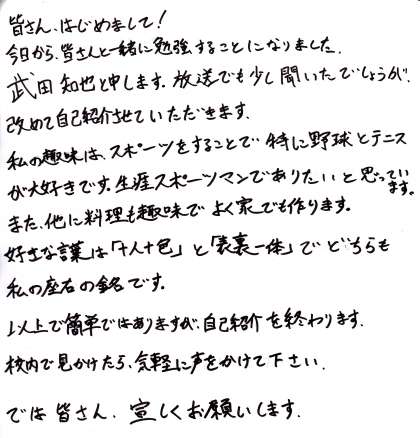 皆さん、はじめまして！
今日から、皆さんと一緒に勉強することになりました、
武田 知也と申します。放送でも少し聞いたでしょうが、
改めて自己紹介させていただきます。
私の趣味は、スポーツをすることで 特に野球とテニス
が大好きです。生涯スポーツマンでありたいと思っています。
また、他に料理も趣味で よく家でも作ります。
好きな言葉は「十人十色」と「表裏一体」で どちらも
私の座右の銘です。
以上で簡単ではありますが、自己紹介を終わります。
校内で見かけたら、気軽に声をかけて下さい。
では 皆さん、宜しくお願いします。